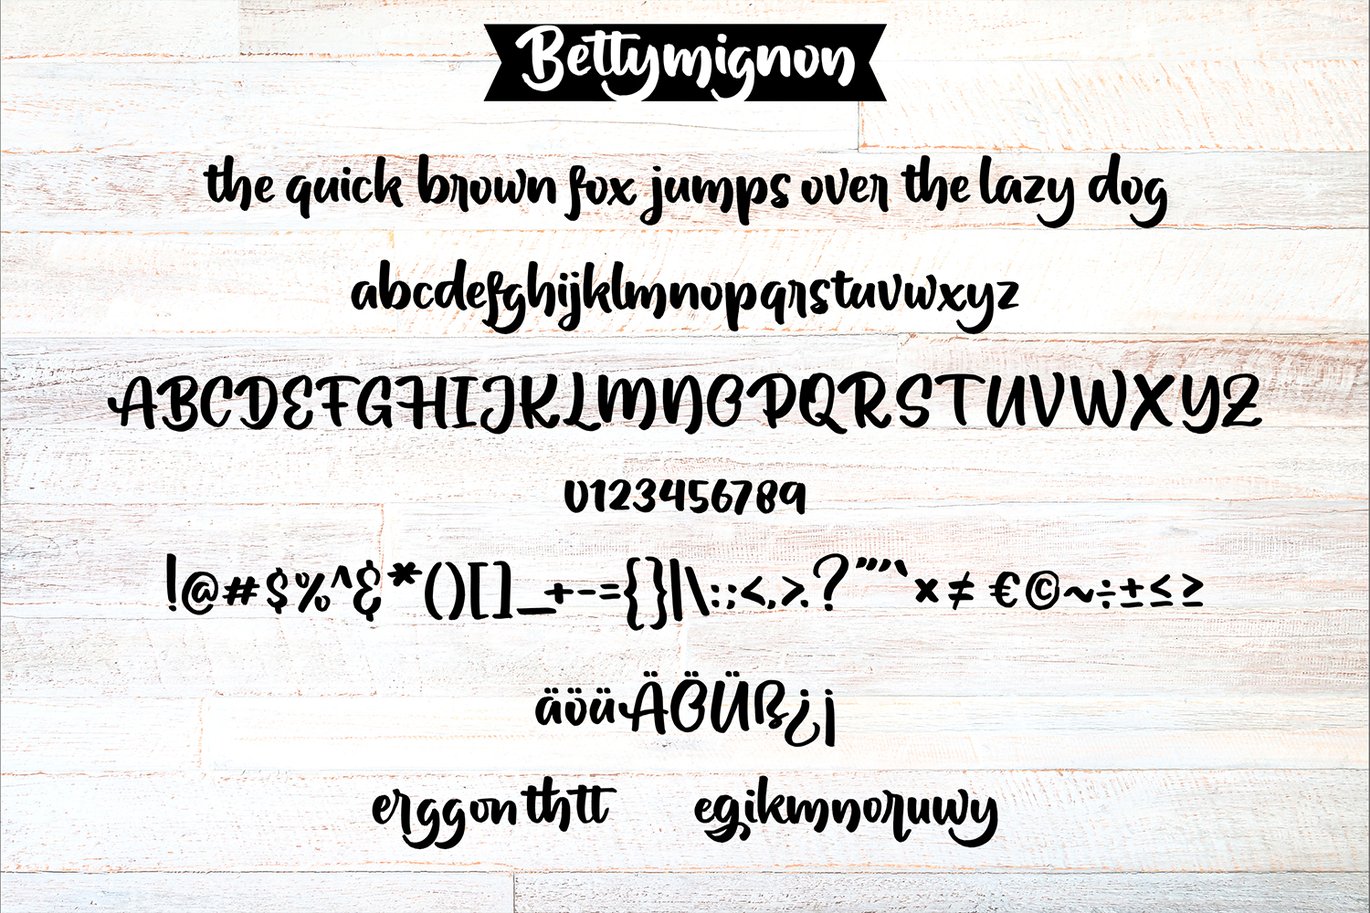 Bettymignon
the quick brown fox jumps over the lazy dog
abcdefghijklmnopqrstuvwxyz
ABCDEFGHIJKLMNOPQRSTUVWXYZ
0123456789
!@#$%^&*()[]_+-={}|\:;<,>.?"'`×≠ €©~÷±≤≥
äöüÄÖÜß¿¡
erggonthtt egikmnoruwy